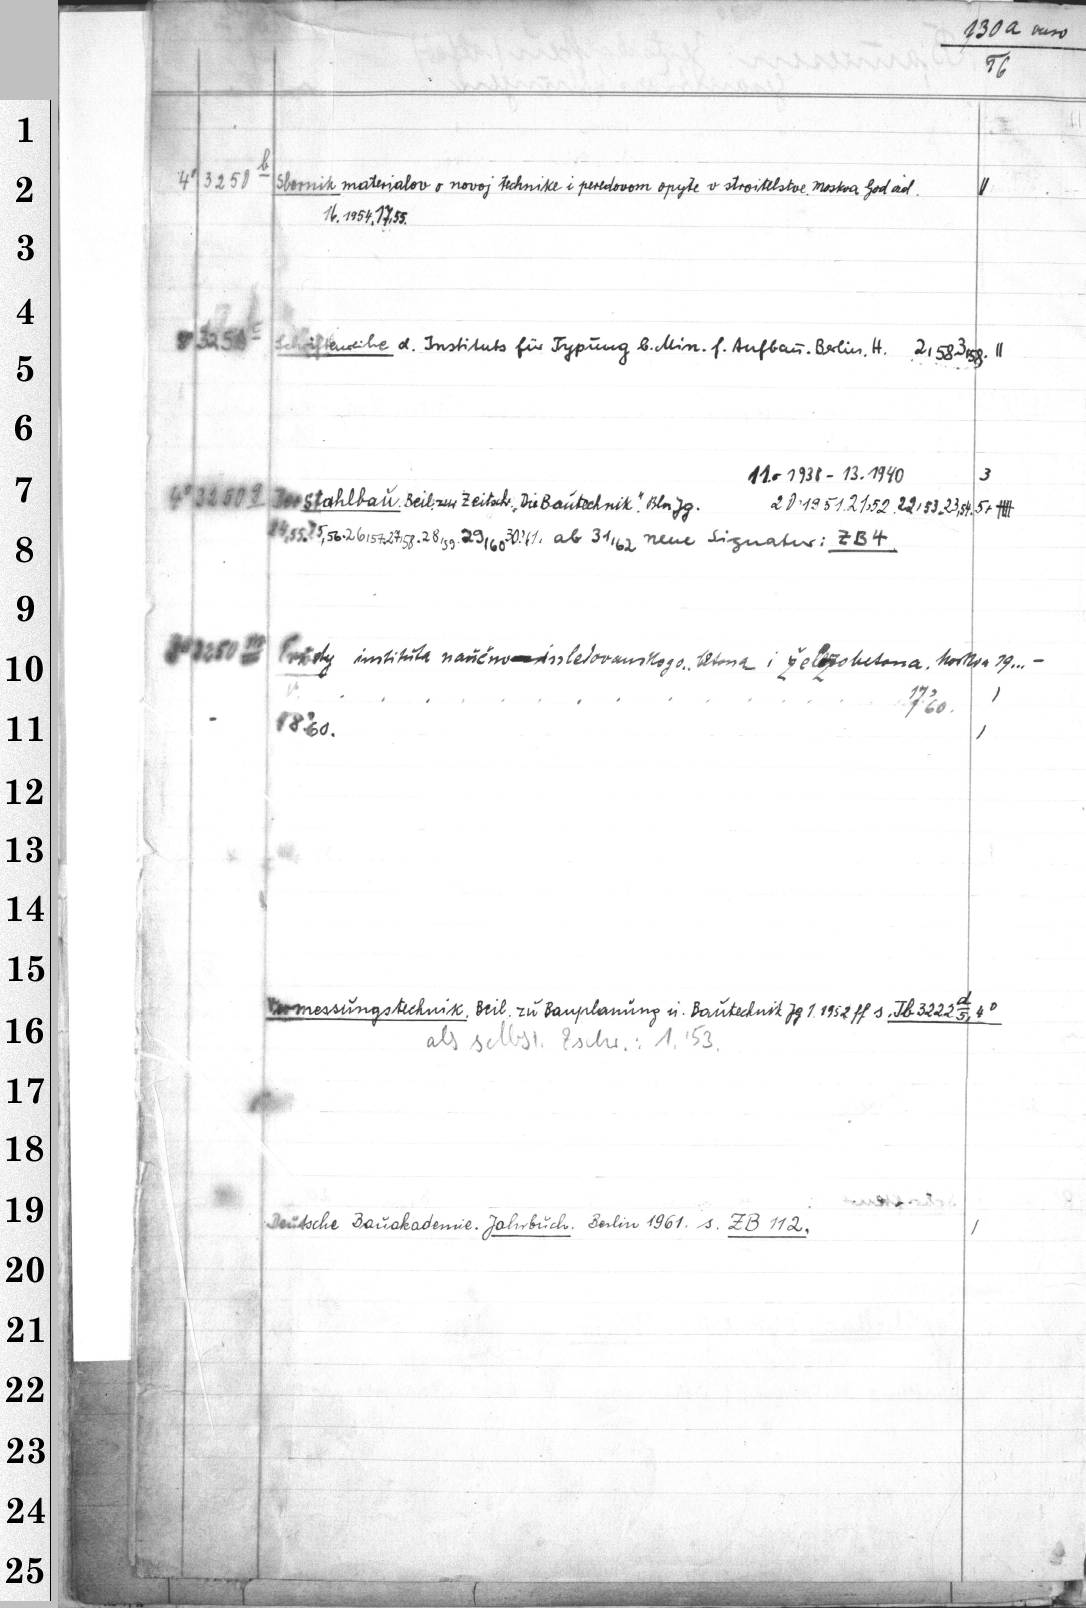 130a verso
T6
1
2
3
4
5
6
7
8
9
10
11
12
13
14
15
16
17
18
19
20
21
22
23
24
25
4° 3250 b Sbornik materialov o novoj technike i peredovom opyte v stroitelstve. Moskva. God izd. II
16. 1954. 17,55.
8° 3250 c Schriftenreihe d. Instituts für Typung b. Min. f. Aufbau. Berlin. H. 2,58 3,58. II
11. 1938 - 13. 1940 3
4° 3250 g Der Stahlbau. Beil. zur Zeitschr. „Die Bautechnik". Bln. Jg. 20.1951. 21,52. 22,53. 23,54. 5+
24,55. 25,56. 26,57. 27,58. 28,59. 29,60 30,61. ab 31,62 neue Signatur: ZB 4
3250 m Trudy instituta naučno-issledovanskogo betona i železobetona. Moskva 19...-
17, 60. I
18, 60. I
Vermessungstechnik. Beil. zu Bauplanung u. Bautechnik Jg 1. 1952 ff s. Tb 3222 d/5, 4°
als selbst. Zschr.: 1. '53.
Deutsche Bauakademie. Jahrbuch. Berlin 1961. s. ZB 112. I